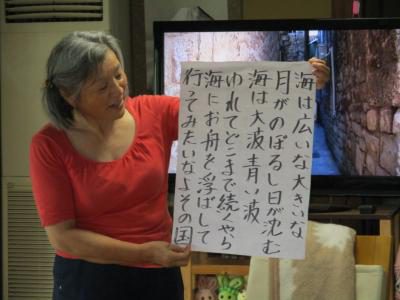 海は広いな大きいな
月がのぼるし日が沈む
海は大波青い波
ゆれてどこまで続くやら
海にお舟を浮ばして
行ってみたいなよその国